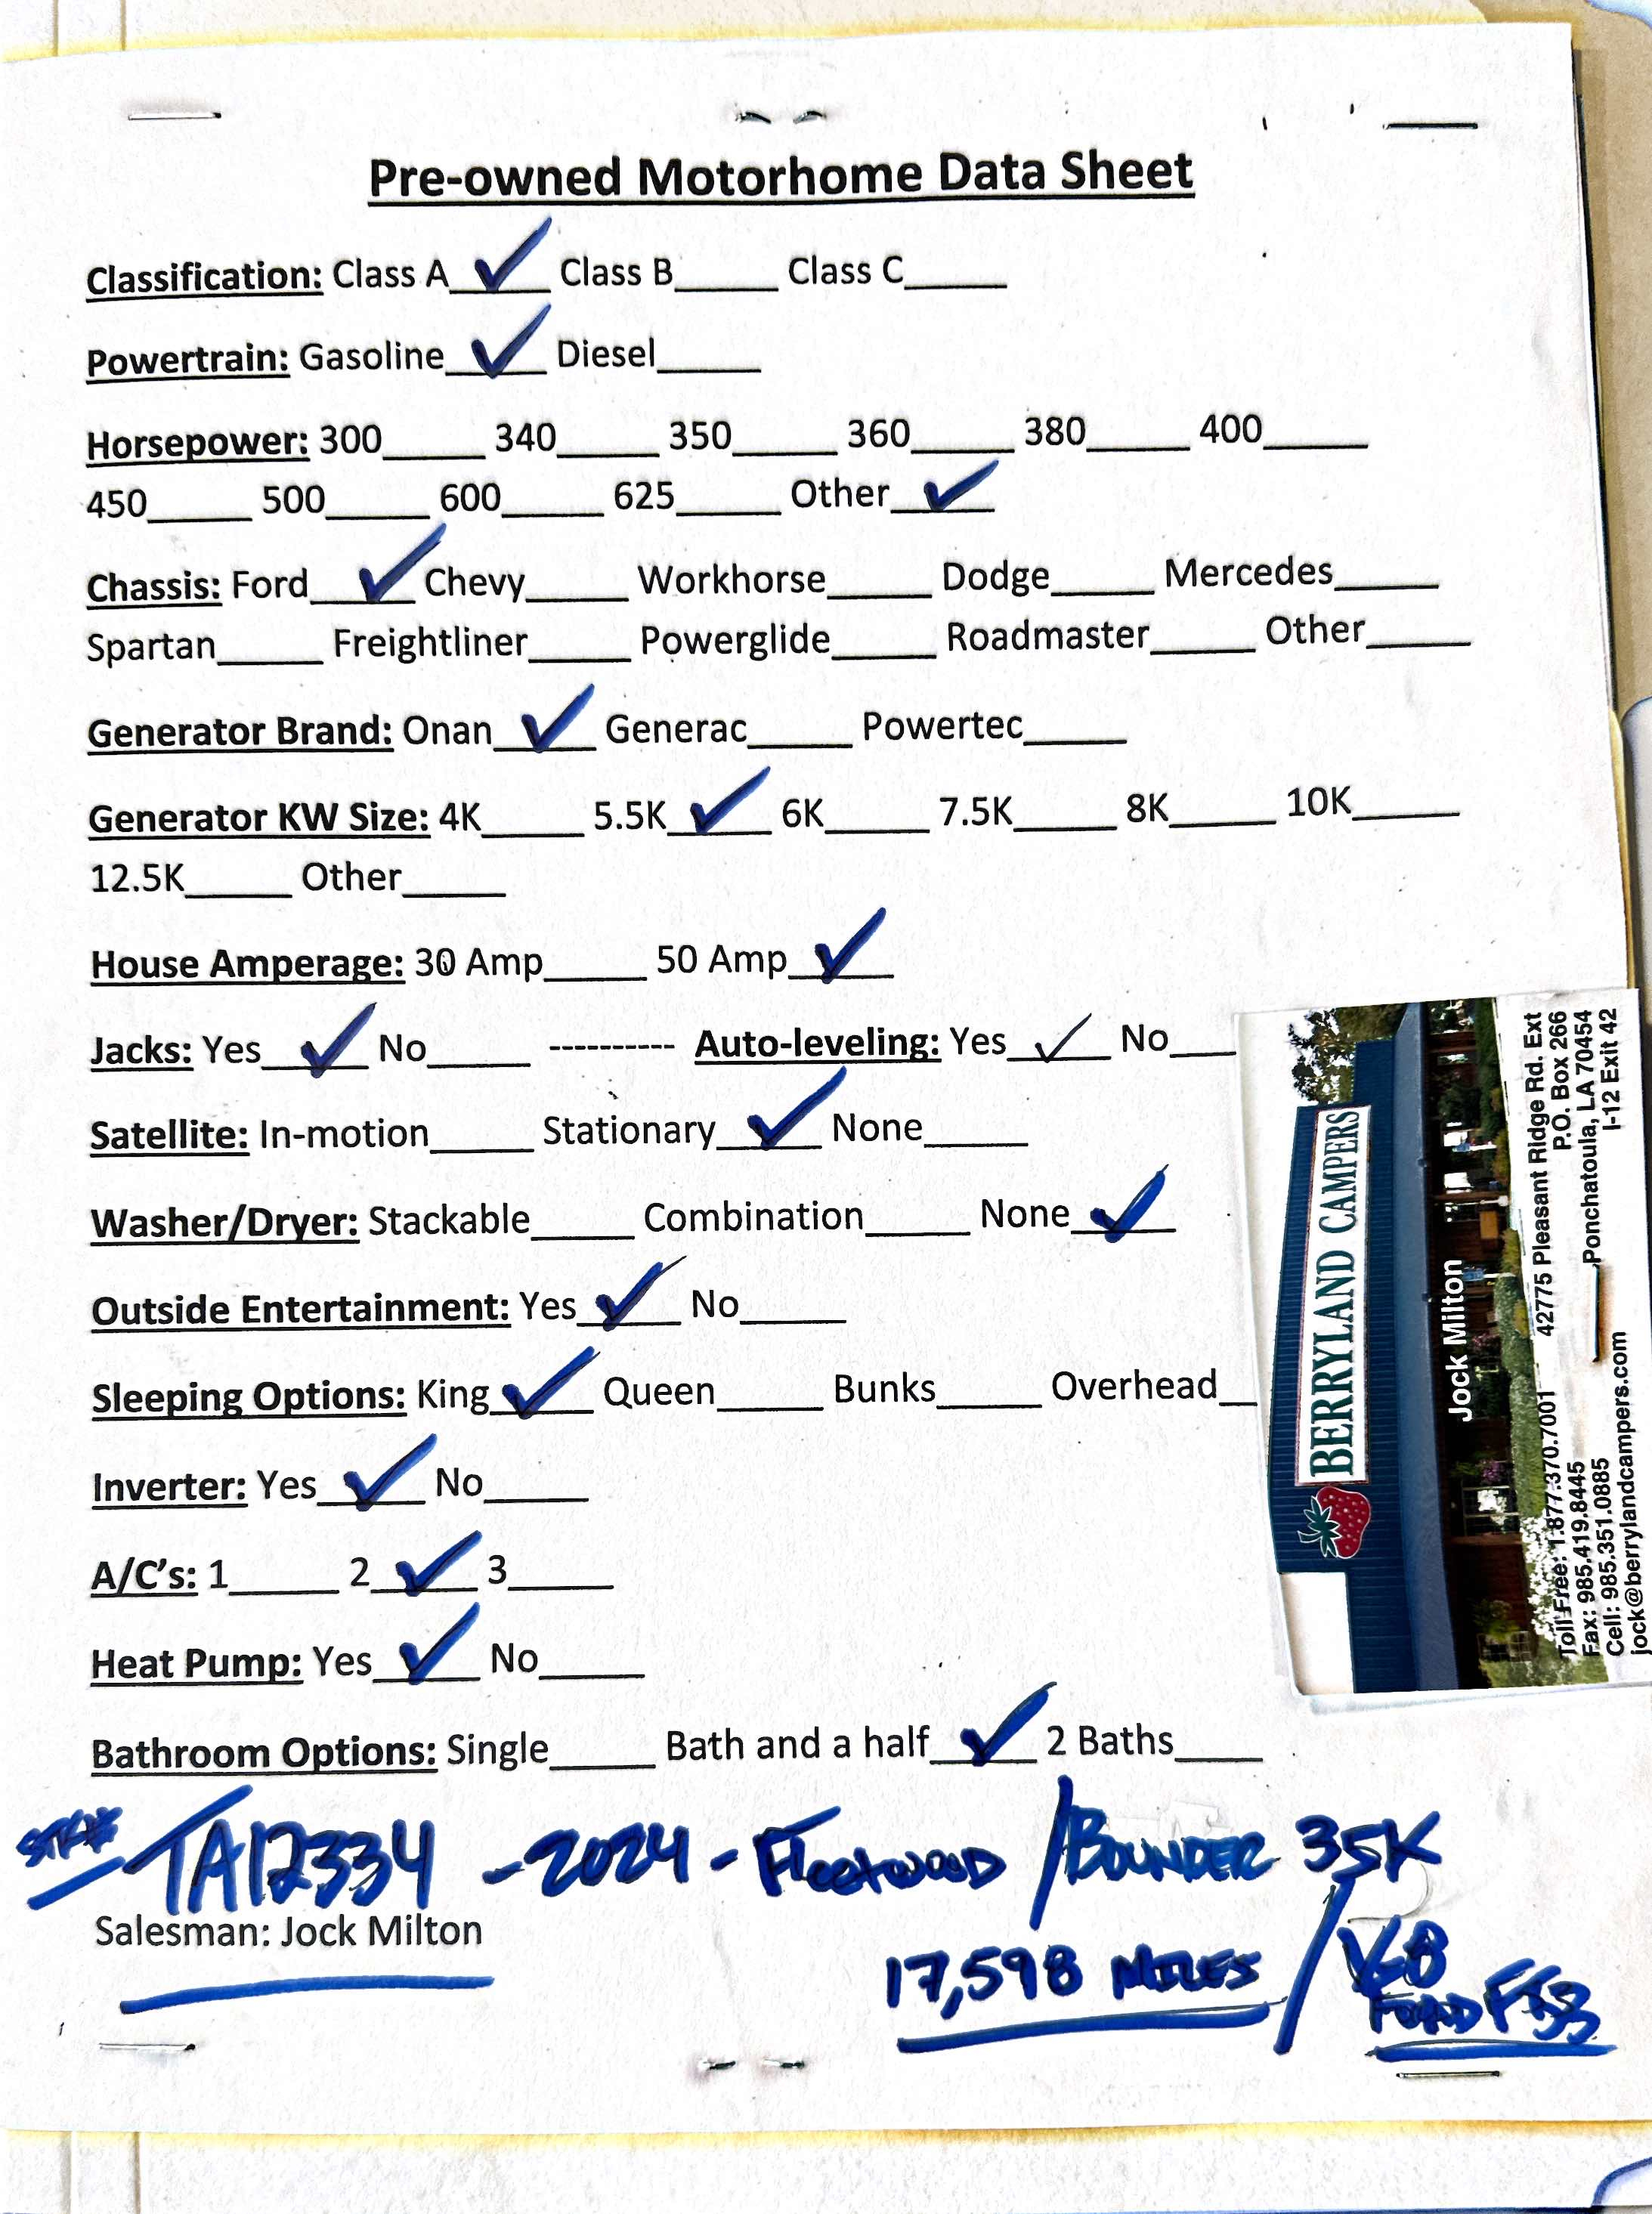 Pre-owned Motorhome Data Sheet
Classification: Class A ✓ Class B_____ Class C_____
Powertrain: Gasoline ✓ Diesel_____
Horsepower: 300_____ 340_____ 350_____ 360_____ 380_____ 400_____
450_____ 500_____ 600_____ 625_____ Other ✓
Chassis: Ford ✓ Chevy_____ Workhorse_____ Dodge_____ Mercedes_____
Spartan_____ Freightliner_____ Powerglide_____ Roadmaster_____ Other_____
Generator Brand: Onan ✓ Generac_____ Powertec_____
Generator KW Size: 4K_____ 5.5K ✓ 6K_____ 7.5K_____ 8K_____ 10K_____
12.5K_____ Other_____
House Amperage: 30 Amp_____ 50 Amp ✓
Jacks: Yes ✓ No_____ ---------- Auto-leveling: Yes ✓ No___
Satellite: In-motion_____ Stationary ✓ None_____
Washer/Dryer: Stackable_____ Combination_____ None ✓
Outside Entertainment: Yes ✓ No_____
Sleeping Options: King ✓ Queen_____ Bunks_____ Overhead__
Inverter: Yes ✓ No_____
A/C's: 1_____ 2 ✓ 3_____
Heat Pump: Yes ✓ No_____
Bathroom Options: Single_____ Bath and a half ✓ 2 Baths____
STK# TA12334 - 2024 - Fleetwood / BOUNDER 35K
Salesman: Jock Milton
17,598 MILES / V8
FORD F53
BERRYLAND CAMPERS
Jock Milton
Toll Free: 1.877.370.7001 42775 Pleasant Ridge Rd. Ext
Fax: 985.419.8445 P.O. Box 266
Cell: 985.351.0885 Ponchatoula, LA 70454
jock@berrylandcampers.com I-12 Exit 42